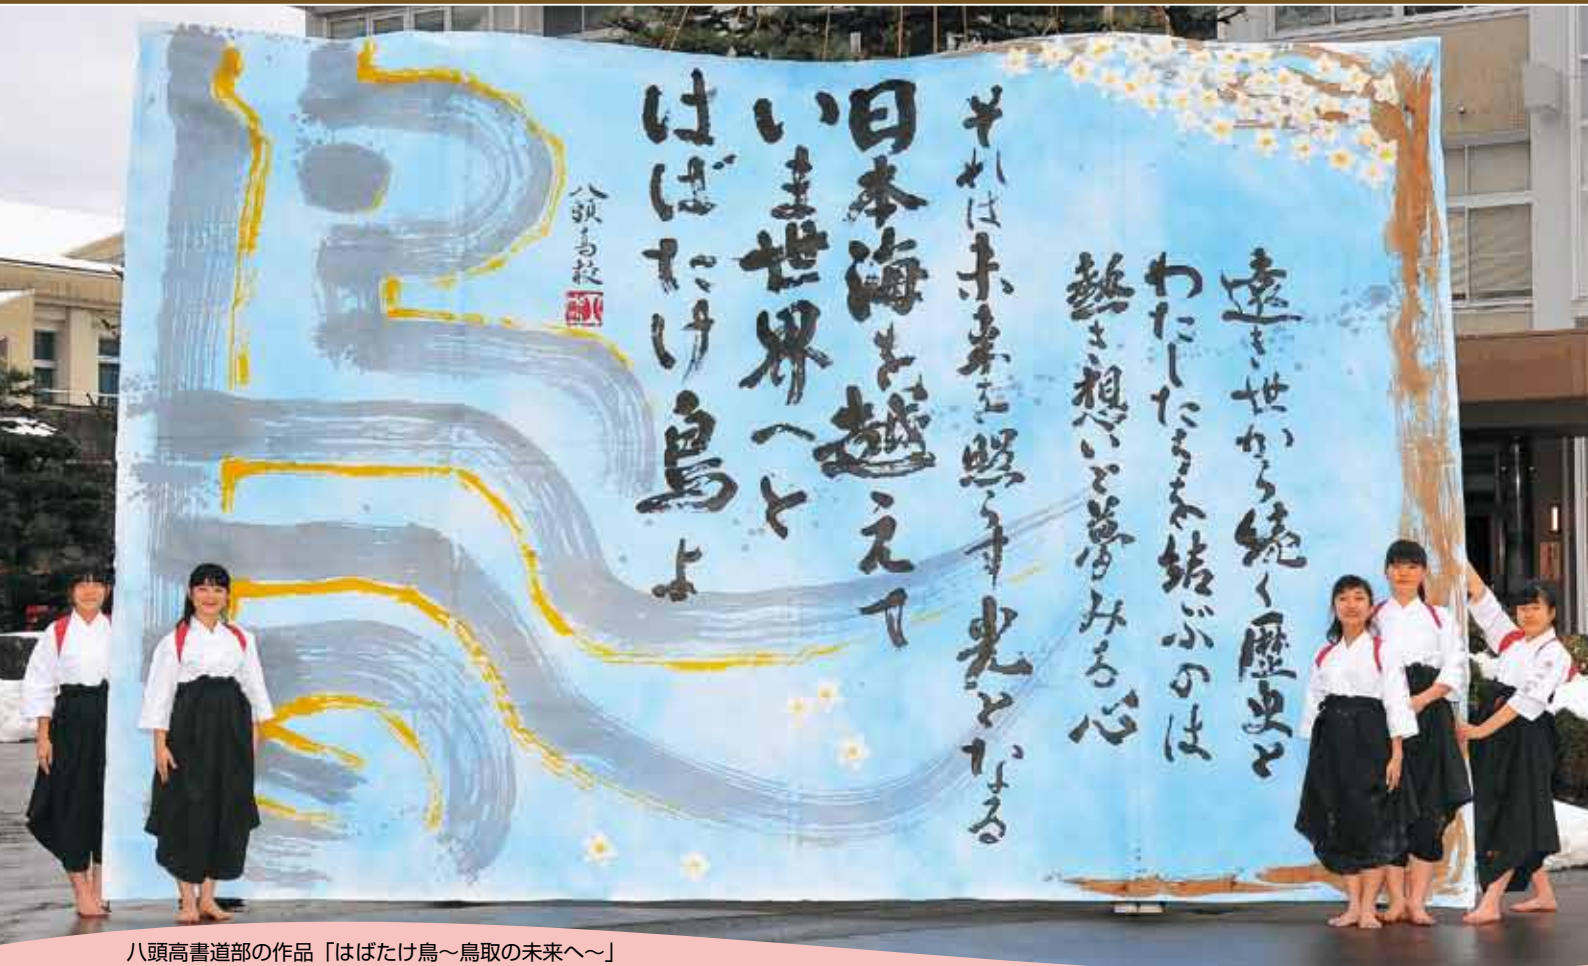 遠き世から続く歴史と
わたしたちを結ぶのは
熱き想いと夢みる心
それは未来を照らす光となる
日本海を越えて
いま世界へと
はばたけ鳥よ
八頭高校
八頭高書道部の作品「はばたけ鳥～鳥取の未来へ～」